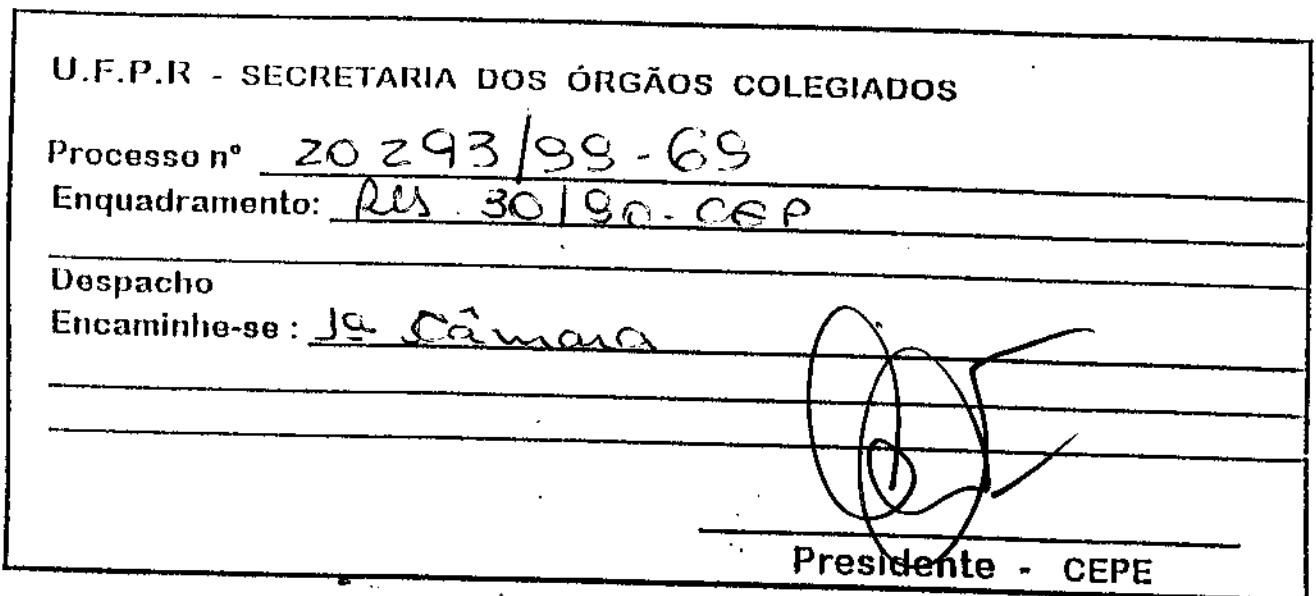 U.F.P.R - SECRETARIA DOS ÓRGÃOS COLEGIADOS
Processo nº 20293/99-69
Enquadramento: Res. 30/90-CEP
Despacho
Encaminhe-se : 1ª Câmara
Presidente - CEPE